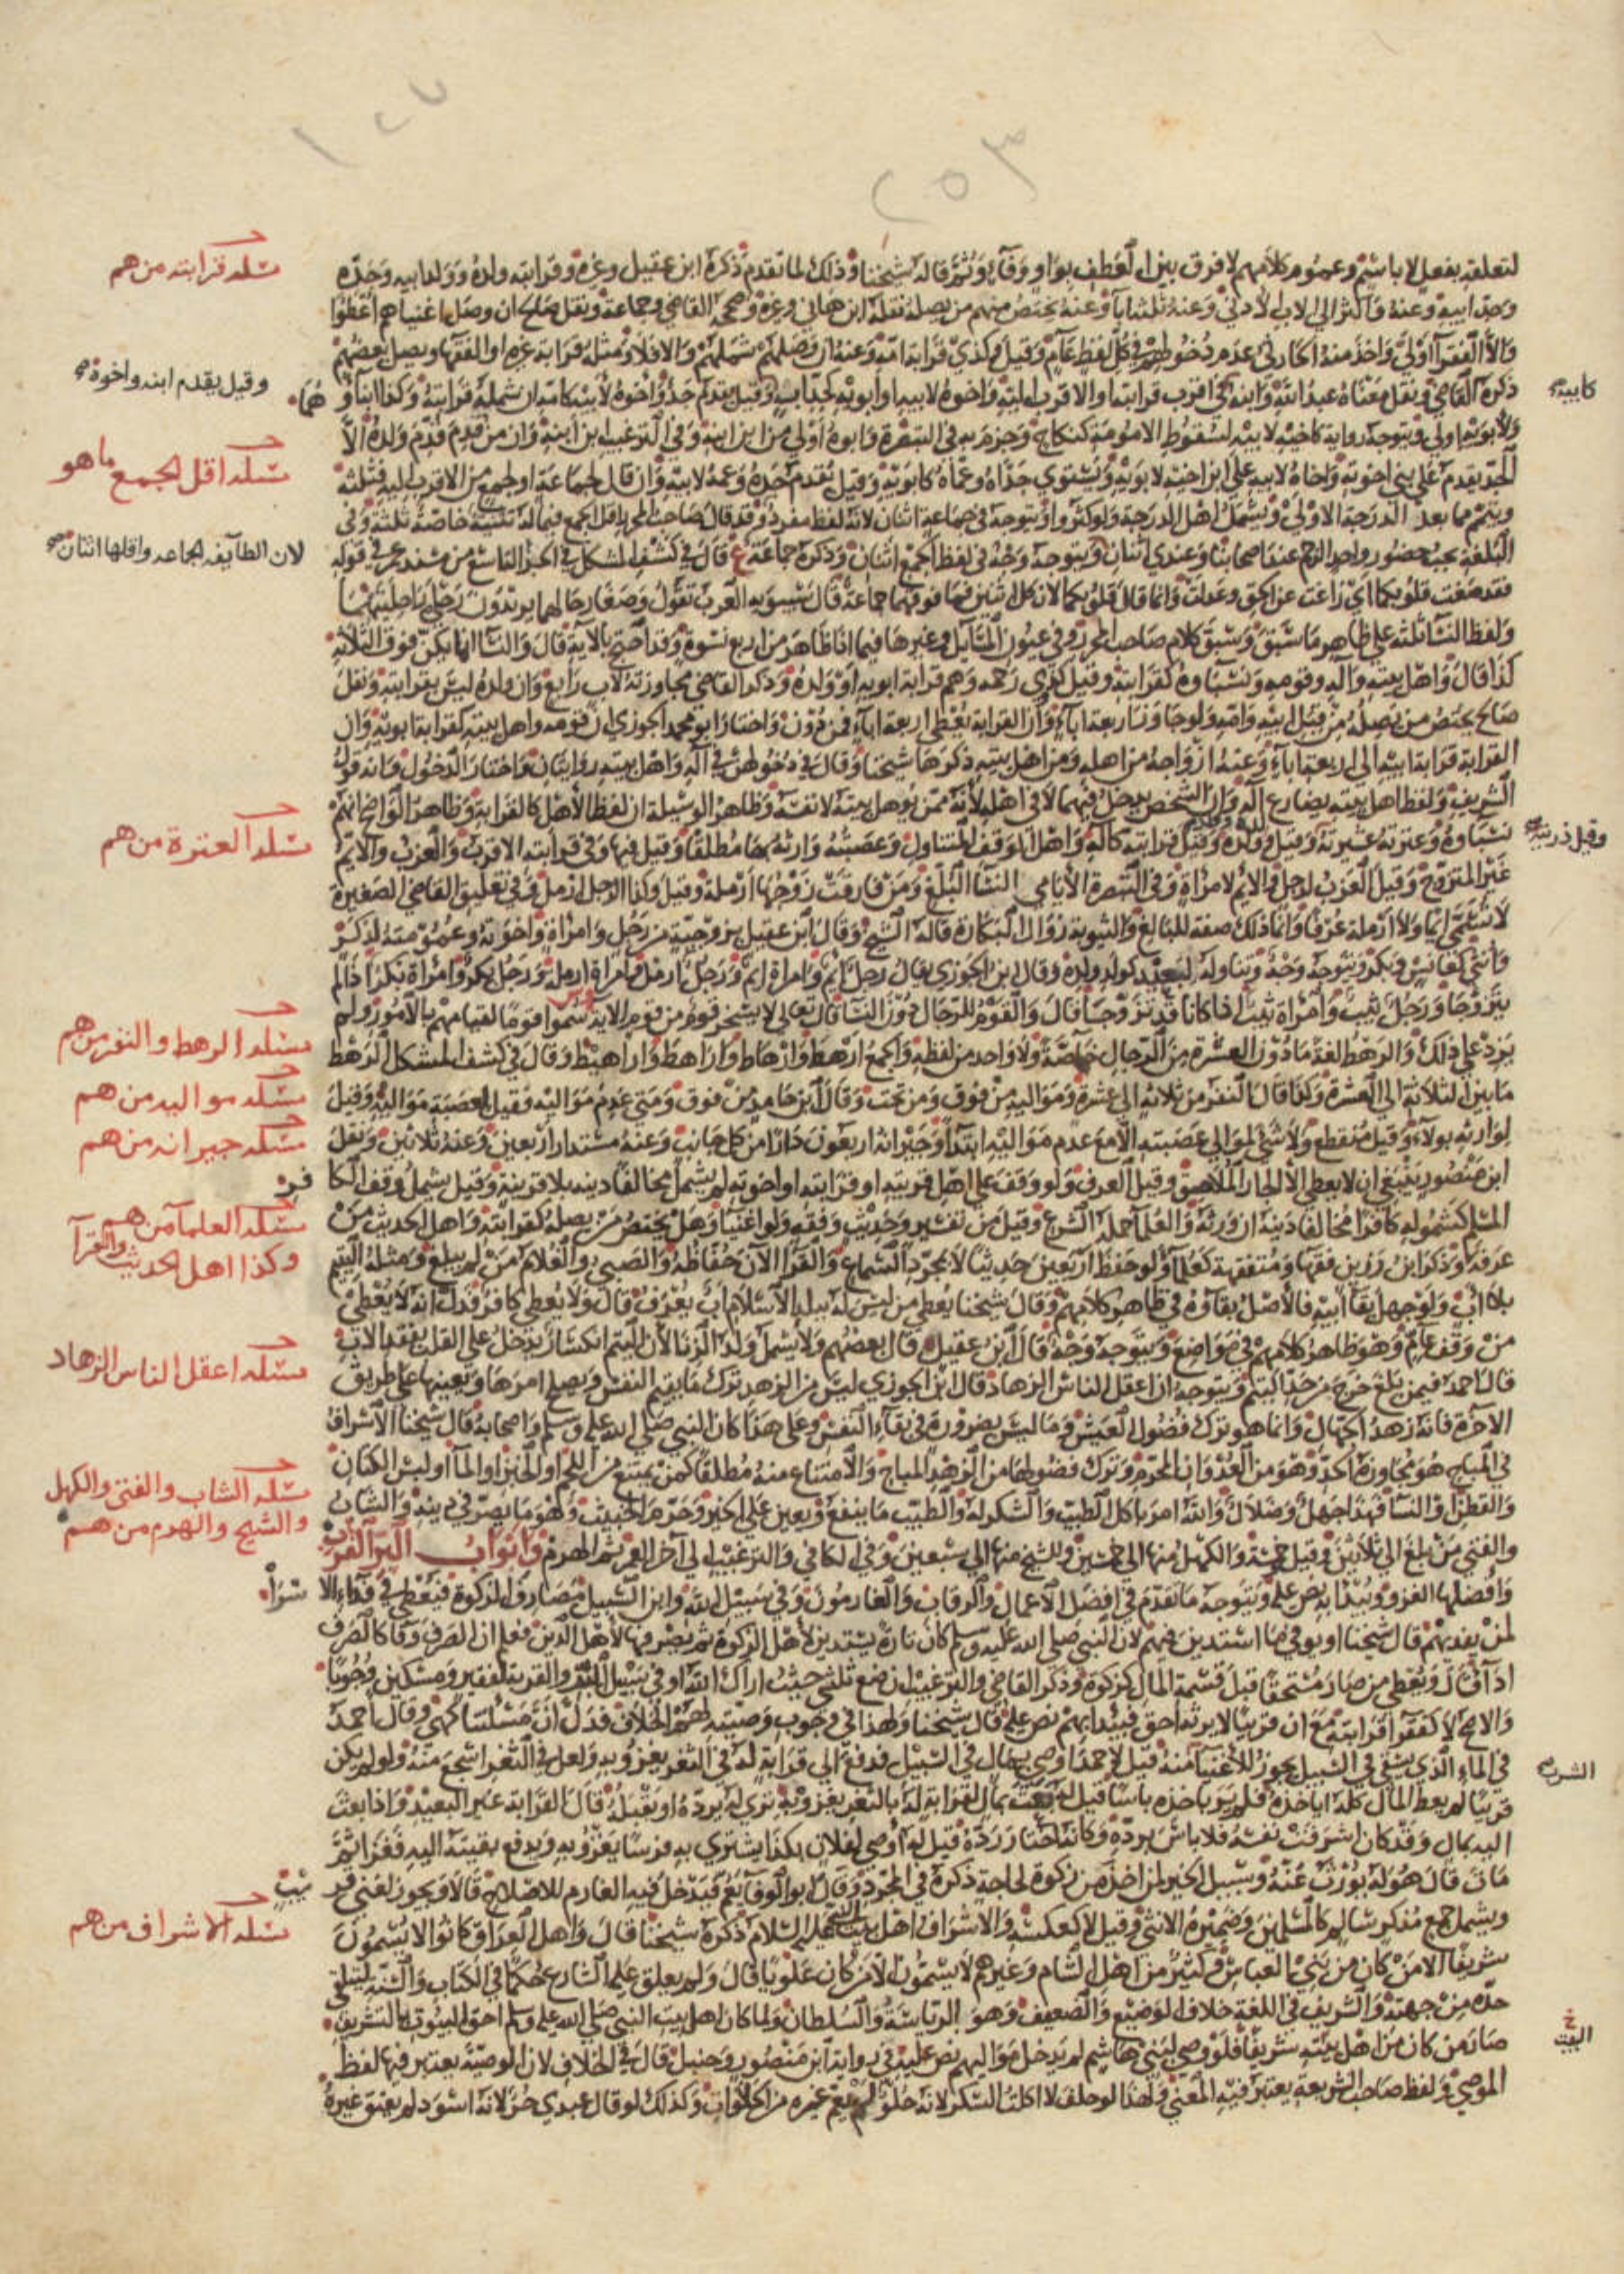 ٢٥٣
لتعلقه بفعل لا باسم وعموم كلامهم لا فرق بين العطف بواو وفاء وثم قاله شيخنا وذلك لما تقدم ذكره ابن عقيل وغيره وقرابته ولده وولد ابيه وجده
مسئلة قرابته من هم
وجد ابيه وعنه فاكثر الى الاب الادنى وعنه ثلثة ابا وعنه يختص منهم من يصله نقله ابن هاني وغيره وصححه القاضي وجماعة ونقل صالح ان وصل اغنياهم اعطوا
والا الفقرا اولى واخذ منه الحارثي عدم دخولهم في كل لفظ عام وقيل كذي قرابة امه وعنه ان وصلهم شملهم والا فلا ومثله قرابة غيره او الفقها ويصل بعضهم
ذكره القاضي ونقل معناه عبد الله وابنه في اقرب قرابته او الاقرب اليه واخوه لابيه او ابويه كجد اب وقيل يقدم جد واخوه لابيه كامه ان شمله قرابته وكذا ابناؤهما
كابيه صح
وقيل يقدم ابنه واخوة صح
ولابويه اولى ويتوجه رواية كاخيه لابيه لسقوط الامومة كنكاح وجزم به في التبصرة وابوه اولى من ابن ابنه وفي الترغيب ابن ابنه وان من قدم قدم ولده الا
الجد يقدم على بني اخوته واخاه لابيه على ابن اخيه لابويه ويستوي جداه وعماه كابويه وقيل يقدم جده وعمه لابيه وان قال لجماعة او لجمع من الاقرب اليه فثلثة
مسئلة اقل الجمع ما هو
ويتمم مما بعد الدرجة الاولى ويشمل اهل الدرجة ولو كثروا ويتوجه في جماعة اثنان لانه لفظ مفرد وقد قال صاحب المحرر اقل الجمع فيما له تثنية خاصة ثلثة وفي
البلغة يجب حضور واحد الرجم عند اصحابنا وعندي اثنان ويتوجه وجه في لفظ الجمع اثنان وذكره جماعة ع قال في كشف المشكل في الخبر التاسع من مسند عمر في قوله
لان الطايفة لجماعة واقلها اثنان صح
فقد صغت قلوبكما اي زاغت عن الحق وعدلت وانما قال قلوبكما لان كل اثنين فما فوقهما جماعة قال سيبويه العرب تقول وضعا رحالهما يريدون رحلي راحلتيهما
ولفظ النسا ثلثة على ظاهر ما سبق وسبق كلام صاحب المحرر وفي عيون المسايل وغيرها فيما اذا ظاهر من اربع نسوة وقد احتج بالاية قال والنسا انما يكن فوق الثلاثة
كذا قال واهل بيته وآله وقومه ونسباوه كقرابته وقيل كذي رحمه وهم قرابة ابويه او ولده وذكر القاضي مجاوزته لاب رابع وان ولده ليس بقرابته ونقل
صالح يختص من يصله من قبل ابيه وامه ولو جاوز اربعة اباء وان القرابة يعطي اربعة اباء فمن دون واختار ابو محمد الجوزي ان قومه واهل بيته كقرابة ابويه وان
القرابة قرابة ابيه الى اربعة اباء وعنه ازواجه من اهله ومن اهل بيته ذكرها شيخنا وقال في دخولهن في آله واهل بيته روايتان واختار الدخول وانه قول
الشريف ولفظ اهل بيته يضارع آله وان الشخص يدخل فيهما لا في اهله لانه ممن يوهل بيته لا نفسه وظاهر الوسيلة ان لفظ الاهل كالقرابة وظاهر الواضح انهم
نسباوه وعترته عشيرته وقيل وولده وقيل قرابته كآله واهل الوقف المتناول وعصبته وارثه بها مطلقا وقيل فيها وفي قرابته الاقرب والعزب والايم
وقيل ذريته صح
مسئلة العترة من هم
غير المتزوج وقيل العزب لرجل والايم لامراة وفي التبصرة الايامى النسا البلغ ومن فارقت زوجها ارملة وقيل وكذا الرجل ارمل وفي تعليق القاضي الصغيرة
لا تسمى ايما ولا ارملة عرفا وانما ذلك صفة للبالغ والثيوبة زوال البكارة قاله الشيخ وقال ابن عقيل بزوجية من رجل وامراة واخوته وعمومته لذكر
وانثى كعانس وبكر ويتوجه وجه وتناوله لبعيد كولد ولده وقال ابن الجوزي يقال رجل ايم وامراة ايم ورجل ارمل وامراة ارملة ورجل بكر وامراة بكر اذا لم
يتزوجا ورجل ثيب وامراة ثيب اذا كانا قد تزوجا قال والقوم للرجال دون النسا قال تعالى لا يسخر قوم من قوم الاية سموا قوما لقيامهم بالامور ولم
يزد على ذلك والرهط لغة ما دون العشرة من الرجال خاصة ولا واحد من لفظه والجمع ارهط وارهاط واراهط واراهيط وقال في كشف المشكل الرهط
مسئلة الرهط والنفر من هم
ما بين الثلاثة الى العشرة وكذا قال النفر من ثلاثة الى عشرة ومواليه من فوق ومن تحت وقال ابن حامد من فوق ومتى عدم مواليه فقيل لعصبة مواليه وقيل
مسئلة مواليه من هم
لوارثه بولاء وقيل منقطع ولا شي لموالي عصبته الا مع عدم مواليه ابتدا وجيرانه اربعون دارا من كل جانب وعنه مستدار اربعين وعنه ثلاثين ونقل
مسئلة جيرانه من هم
ابن منصور ينبغي ان لا يعطى الا الجار الملاصق وقيل العرف ولو وقف على اهل قريته او قرابته او اخوته لم يشمل مخالفا دينه بلا قرينة وقيل يشمل وقف الكافر
المسلم كشموله كافرا مخالفا دينه ان ورثه والعلما حملة الشرع وقيل من تفسير وحديث وفقه ولو اغنيا وهل يختص من يصله كقرابته واهل الحديث من
مسئلة العلمآ من هم
وكذا اهل الحديث والقرآ
عرفه وذكر ابن رزين فقها ومتفقهة كعلما ولو حفظ اربعين حديثا لا بمجرد السماع والقرا الآن حفاظه والصبي والغلام من لم يبلغ ومثله اليتيم
بلا اب ولو جهل بقا ابيه فالاصل بقاوه في ظاهر كلامهم وقال شيخنا يعطى من ليس له ببلد الاسلام اب يعرف قال ولا يعطى كافر فدل انه لا يعطى
من وقف عام وهو ظاهر كلامهم في مواضع ويتوجه وجه قال ابن عقيل وقال بعضهم ولا يشمل ولد الزنا لان اليتم انكسار يدخل على القلب بفقد الاب
قال احمد فيمن بلغ خرج من حد اليتم ويتوجه ان اعقل الناس الزهاد قال ابن الجوزي ليس من الزهد ترك ما يقيم النفس ويصلح امرها ويعينها على طريق
مسئلة اعقل الناس الزهاد
الآخرة فانه زهد الجهال وانما هو ترك فضول العيش وما ليس بضرورة في بقاء النفس وعلى هذا كان النبي صلى الله عليه وسلم واصحابه قال شيخنا الاسراف
في المباح هو مجاوزة الحد وهو من العدوان المحرم وترك فضولها من الزهد المباح والامتناع منه مطلقا كمن يمتنع من اللحم او الخبز او المآ او لبس الكتان
والقطن او النسا فهذا جهل وضلال والله امر باكل الطيب والشكر له والطيب ما ينفع ويعين على الخير وحرم الخبيث وهو ما يضر في دينه والشاب
مسئلة الشاب والفتى والكهل
والشيخ والهرم من هم
والفتى من بلغ الى ثلاثين وقيل خمسة والكهل منها الى خمسين والشيخ منها الى سبعين وفي الكافي والترغيب الى آخر العمر ثم الهرم وابواب البر القرب
وافضلها الغزو ويبدا به نص عليه ويتوجه ما تقدم في افضل الاعمال والرقاب والغارمون وفي سبيل الله وابن السبيل مصارف الزكوة فيعطى في فداء الاسرا
لمن يفديهم قال شيخنا او يوفي ما استدين فيهم لان النبي صلى الله عليه وسلم كان تارة يستدين لاهل الزكوة ثم يصرفها لاهل الدين فعلم ان الصرف وفا كالصرف
ادآ قال ويعطى من صار مستحقا قبل قسمة المال كزكوة وذكر القاضي والترغيب ان ضع ثلثي حيث اراك الله او في سبيل البر والقربة لفقير ومسكين وجوبا
والاصح لا كفقرا قرابته مع ان قريبا لا يرثه احق فيبدا بهم نص عليه قال شيخنا ولهذا في وجوب وصيته لهم الخلاف فدل ان مسئلتنا كهي وقال احمد
في الماء الذي يسقى في السبيل يجوز للاغنيا منه قيل لاحمد اوصى بمال في السبيل فدفع الى قرابة له في الثغر يغزو به ولعل في الثغر اشجع منه ولو لم يكن
قريبا لم يعط المال كله اياخذه فلم ير باخذه باسا قيل له بعث بمال لقرابة له بالثغر يغزو به ترى له يرده او يقبله قال القرابة غير البعيد واذا بعث
اليه بمال وقد كان اشرفت نفسه فلا باس برده وكانه اختار رده قيل له اوصى لفلان بكذا يشترى به فرسا يغزو به ويدفع بقيته اليه فغزا ثم
مات قال هو له يورث عنه وسبيل الخير لمن اخذ من زكوة لحاجة ذكره في المجرد وقال ابو الوفا يعم فيدخل فيه الغارم للاصلاح قالا ويجوز لغني قريب
ويشمل جمع مذكر سالم كالمسلمين وضميره الانثى وقيل لا كعكسه والاشراف اهل بيت النبي عليه السلام ذكره شيخنا قال واهل العراق كانوا لا يسمون
مسئلة الاشراف من هم
شريفا الا من كان من بني العباس وكثير من اهل الشام وغيرهم لا يسمون الا من كان علويا قال ولم يعلق عليه الشارع حكما في الكتاب والسنة ليتلقى
حده من جهته والشريف في اللغة خلاف الوضيع والضعيف وهو الرياسة والسلطان ولما كان اهل بيت النبي صلى الله عليه وسلم احق البيوت بالتشريف
البيت
صار من كان من اهل بيته شريفا فلو وصى لبني هاشم لم يدخل مواليهم نص عليه في رواية ابن منصور وحنبل قال في الخلاف لان الوصية يعتبر فيها لفظ
الموصي ولفظ صاحب الشريعة يعتبر فيه المعنى ولهذا لو حلف لا اكلت السكر لانه حلو لم يعم غيره من الحلاوات وكذلك لو قال عبدي حر لانه اسود لم يعتق غيره